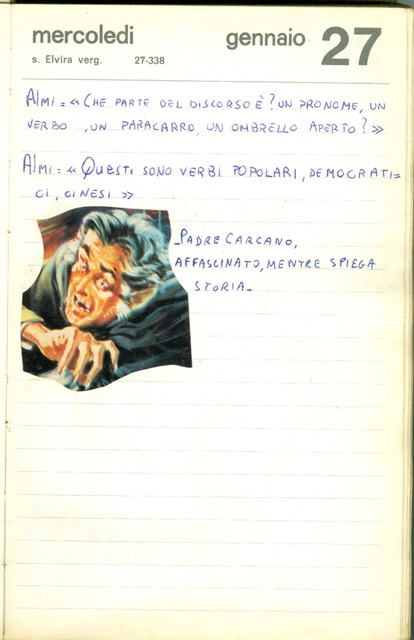 mercoledi gennaio 27
s. Elvira verg. 27-338
Almi = « CHE PARTE DEL DISCORSO È? UN PRONOME, UN
VERBO, UN PARACARRO, UN OMBRELLO APERTO? »
Almi = « QUESTI SONO VERBI POPOLARI, DEMOCRATI=
CI, CINESI »
_PADRE CARCANO,
AFFASCINATO, MENTRE SPIEGA
STORIA_